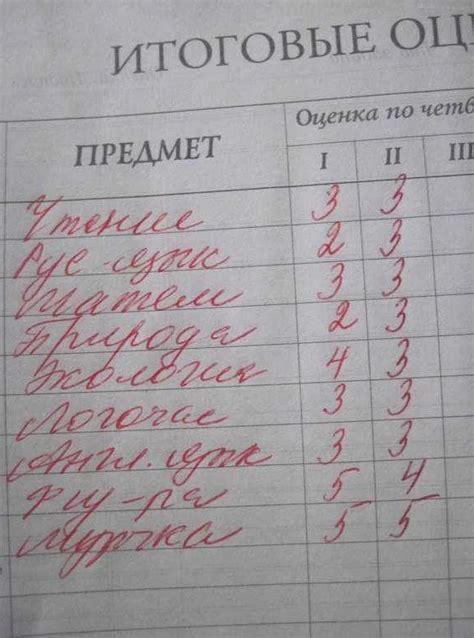 ИТОГОВЫЕ ОЦ
ПРЕДМЕТ
Оценка по четв
I II III
Чтение 3 3
Рус-язык 2 3
Матем 3 3
Природа 2 3
Экология 4 3
Логочас 3 3
Англ. язык 3 3
Физ-ра 5 4
Музыка 5 5